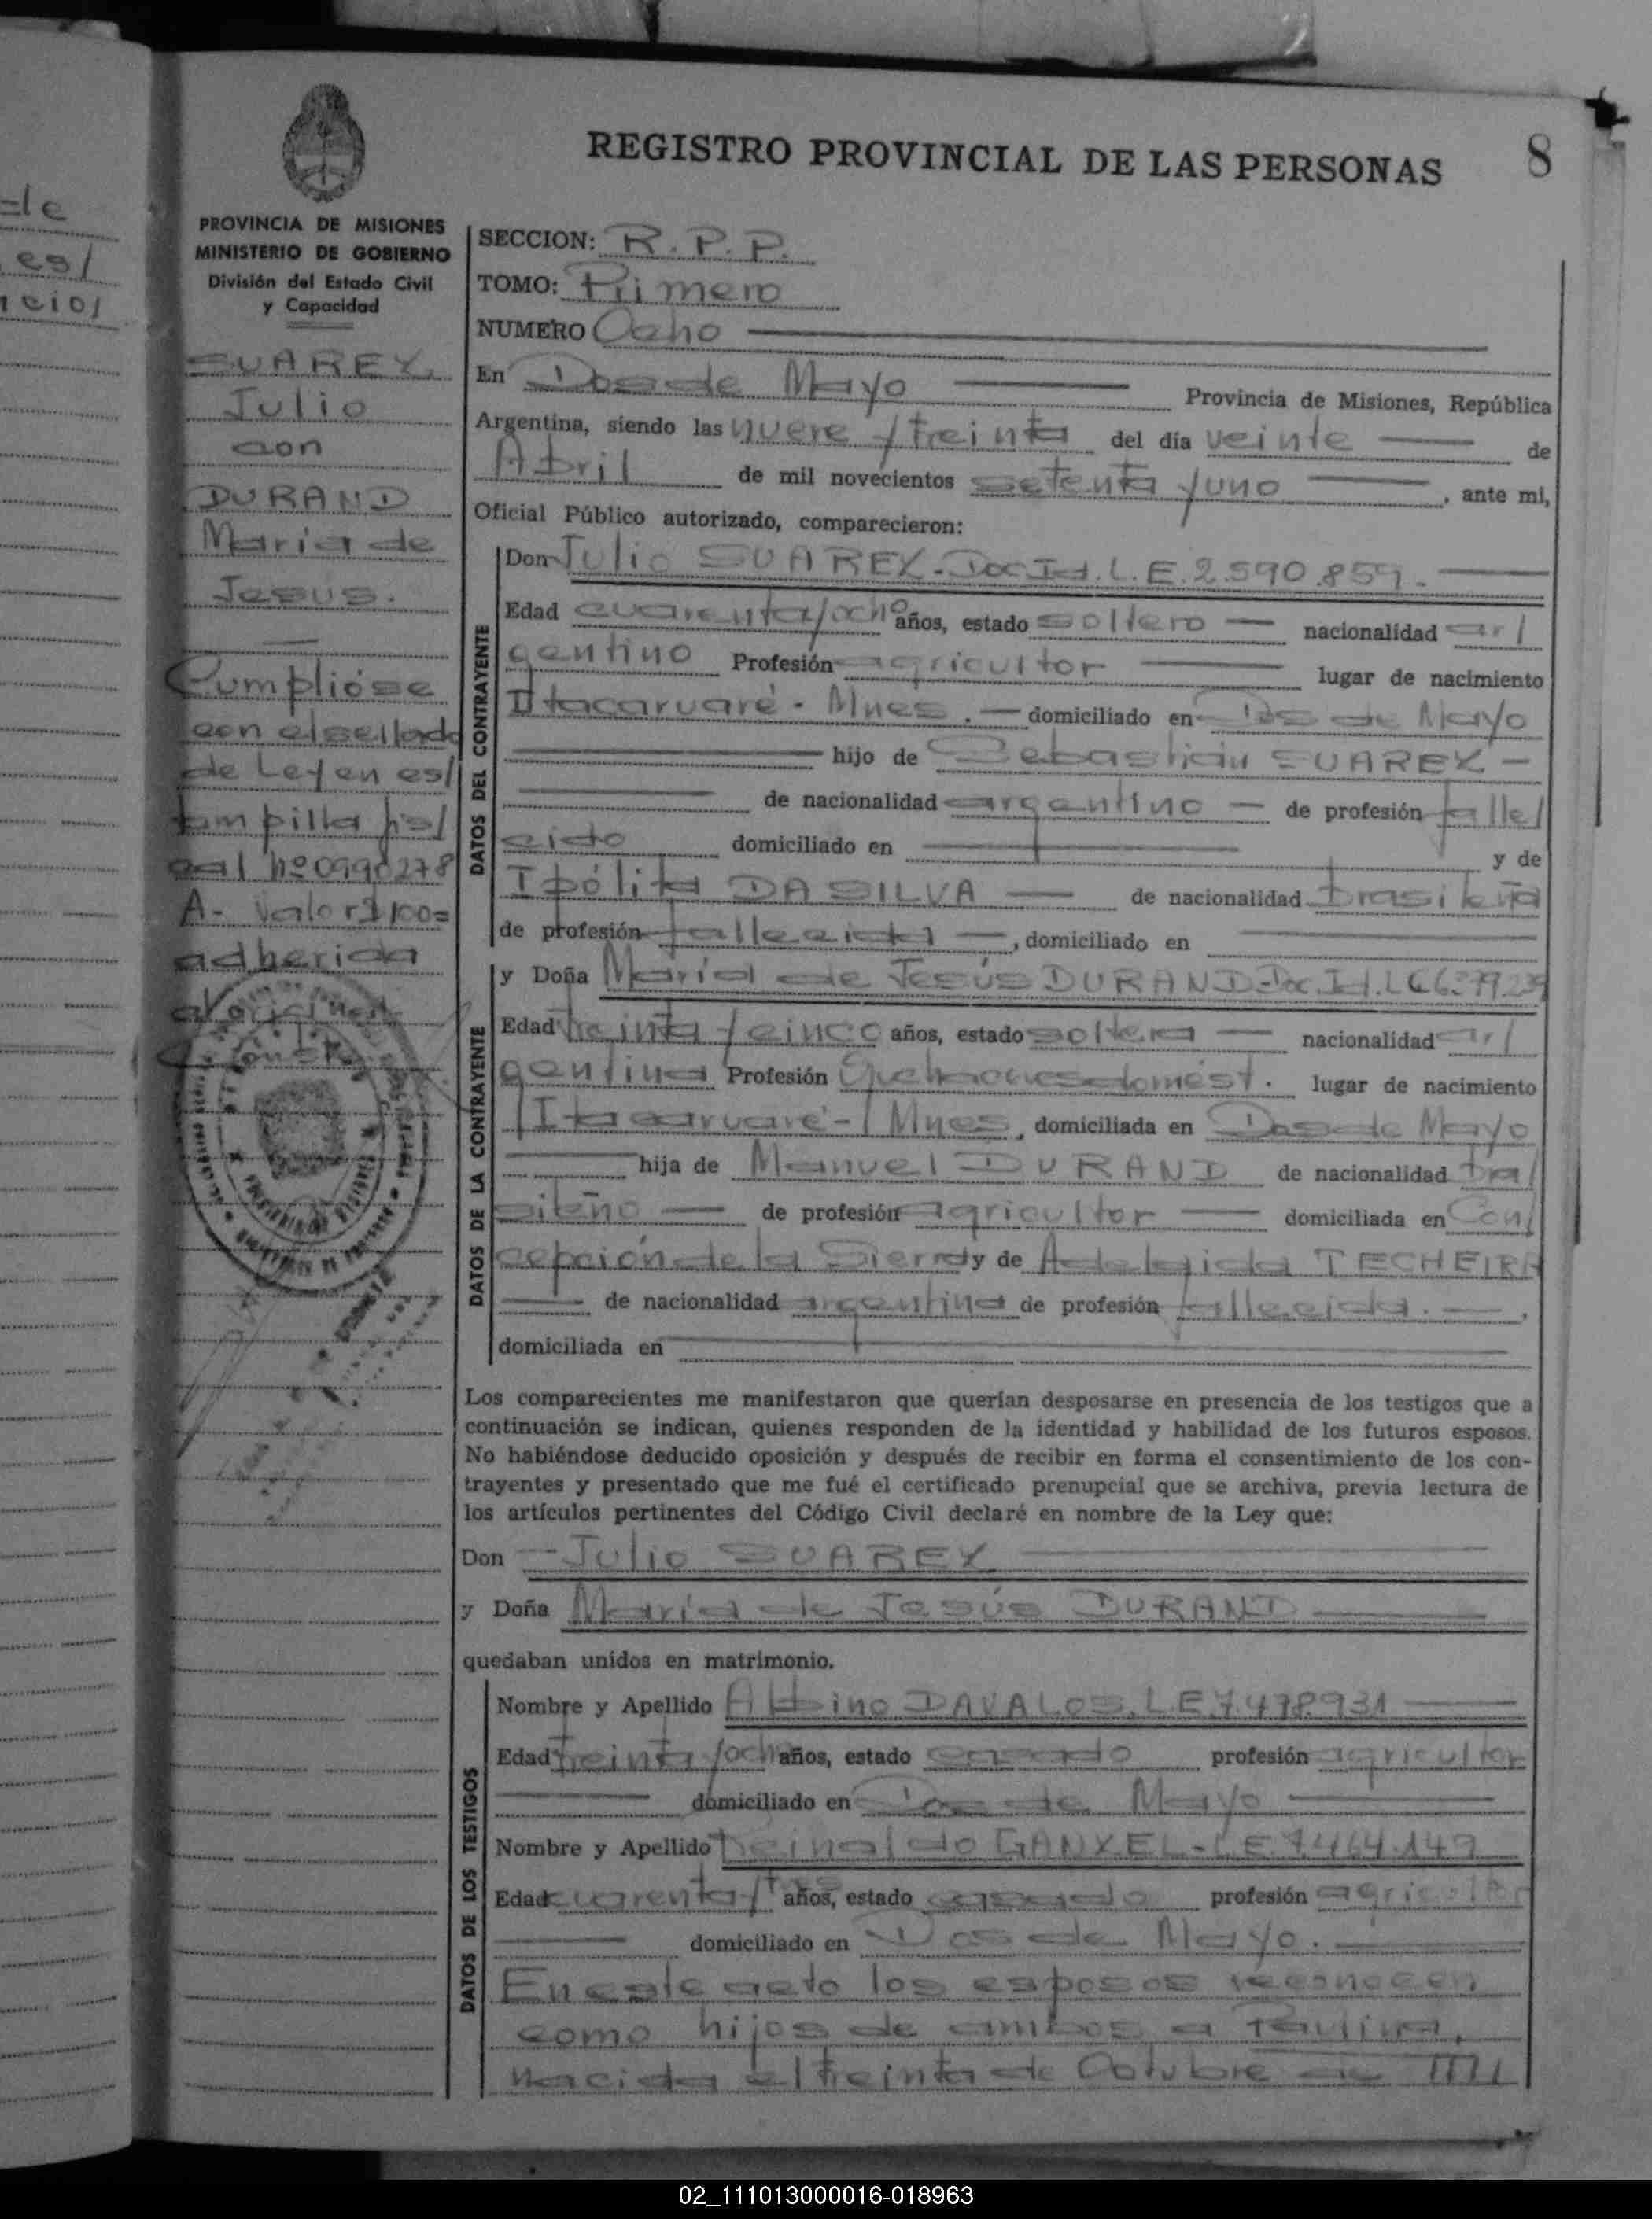 REGISTRO PROVINCIAL DE LAS PERSONAS
8
PROVINCIA DE MISIONES
MINISTERIO DE GOBIERNO
División del Estado Civil
y Capacidad
SUAREZ,
Julio
con
DURAND
María de
Jesus.
Cumplióse
con el sellado
de Ley en es/
tampilla fis/
cal nº 0990278
A- valor $100=
adherida
SECCION: R.P.P.
TOMO: Primero
NUMERO Ocho
En Dos de Mayo Provincia de Misiones, República
Argentina, siendo las nueve y treinta del día veinte de
Abril de mil novecientos setenta y uno, ante mi,
Oficial Público autorizado, comparecieron:
DATOS DEL CONTRAYENTE
Don Julio SUAREZ.- Doc. Id. L.E. 2.590.859.
Edad cuarenta y ocho años, estado soltero nacionalidad ar/
gentino Profesión agricultor lugar de nacimiento
Itacaruaré - Mnes. domiciliado en Dos de Mayo
hijo de Sebastian SUAREZ
de nacionalidad argentino de profesión falle/
cido domiciliado en y de
Ipólita DA SILVA de nacionalidad brasileña
de profesión fallecida, domiciliado en
DATOS DE LA CONTRAYENTE
y Doña María de Jesús DURAND - Doc. Id. L.C
Edad treinta y cinco años, estado soltera nacionalidad ar/
gentina Profesión Quehaceres domést. lugar de nacimiento
Itacaruaré - Mnes, domiciliada en Dos de Mayo
hija de Manuel DURAND de nacionalidad bra/
sileño de profesión agricultor domiciliada en Con/
cepción de la Sierra y de Adelaida TECHEIRA
de nacionalidad argentina de profesión fallecida.
domiciliada en
Los comparecientes me manifestaron que querían desposarse en presencia de los testigos que a
continuación se indican, quienes responden de la identidad y habilidad de los futuros esposos.
No habiéndose deducido oposición y después de recibir en forma el consentimiento de los con-
trayentes y presentado que me fué el certificado prenupcial que se archiva, previa lectura de
los artículos pertinentes del Código Civil declaré en nombre de la Ley que:
Don Julio SUAREZ
y Doña María de Jesús DURAND
quedaban unidos en matrimonio.
DATOS DE LOS TESTIGOS
Nombre y Apellido Albino DAVALOS. L.E. 7.478.931
Edad treinta y ocho años, estado casado profesión agricultor
domiciliado en Dos de Mayo
Nombre y Apellido Reinaldo GANZEL - L.E. 7.464.149
Edad cuarenta y tres años, estado casado profesión agricultor
domiciliado en Dos de Mayo.
En este acto los esposos reconocen
como hijos de ambos a Paulina,
nacida el treinta de Octubre de mil
02_111013000016-018963